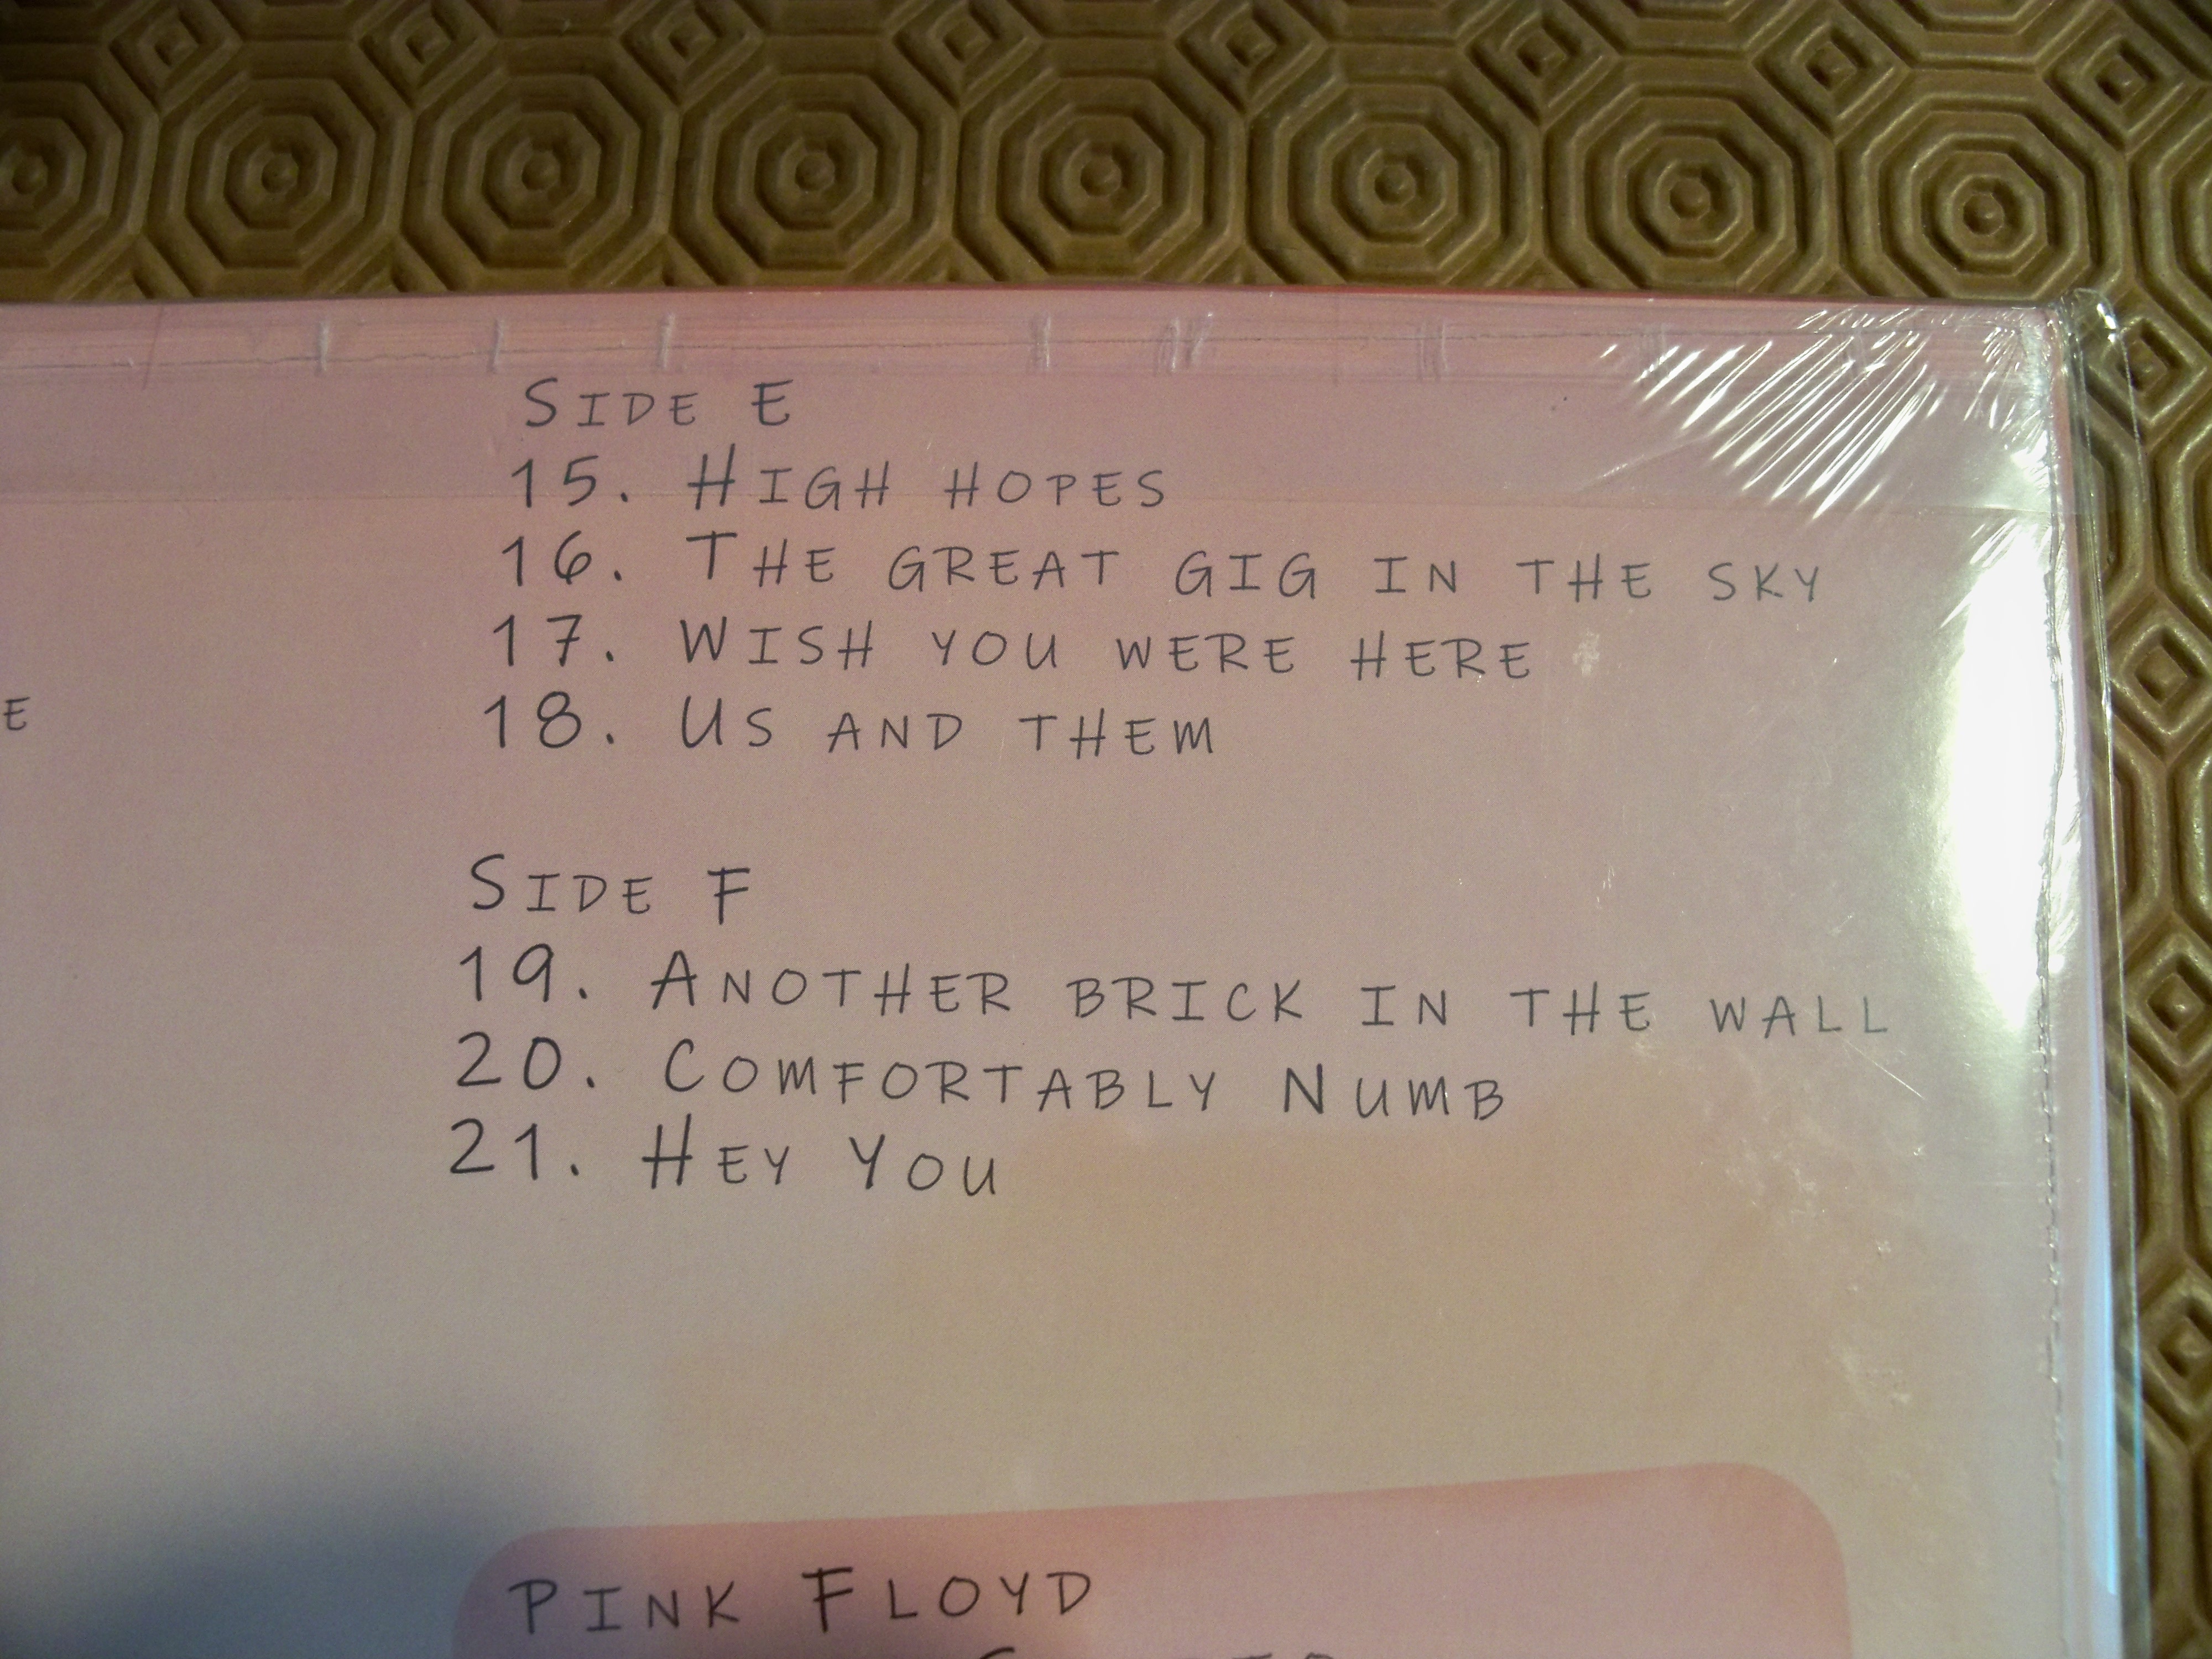 Side E
15. High hopes
16. The great gig in the sky
17. Wish you were here
18. Us and them
E
Side F
19. Another brick in the wall
20. Comfortably Numb
21. Hey You
Pink Floyd